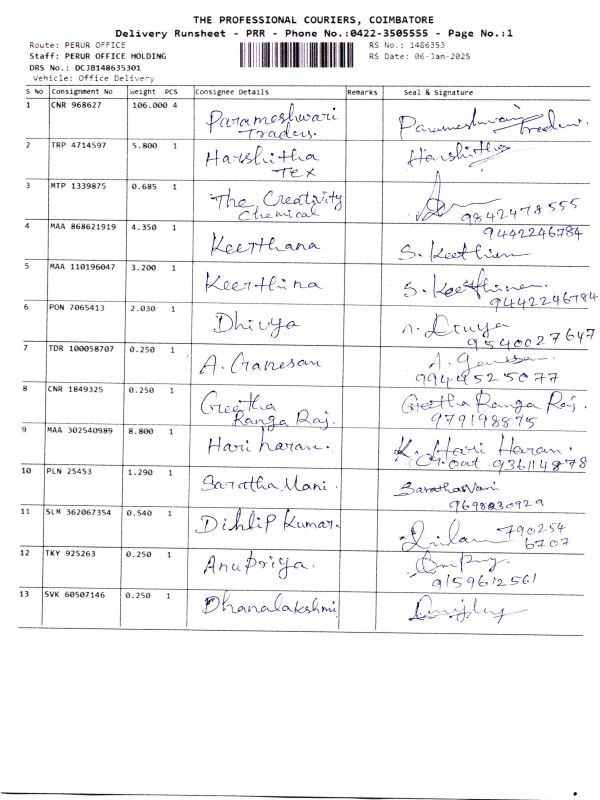 THE PROFESSIONAL COURIERS, COIMBATORE
Delivery Runsheet - PRR - Phone No.:0422-3505555 - Page No.:1
Route: PERUR OFFICE RS No.: 1486353
Staff: PERUR OFFICE HOLDING RS Date: 06-Jan-2025
DRS No.: DCJB148635301
Vehicle: Office Delivery
S No Consignment No Weight PCS Consignee Details Remarks Seal & Signature
1 CNR 968627 106.000 4 Parameshwari Traders. Parameshwari Traders.
2 TRP 4714597 5.800 1 Harshitha Tex Harshitha
3 MTP 1339875 0.685 1 The Creativity Chemical 9842478555
4 MAA 868621919 4.350 1 Keerthana 9442246784 S. Keerthana
5 MAA 110196047 3.200 1 Keerthina S. Keerthina 9442246784
6 PON 7065413 2.030 1 Dhivya 9540027647
7 TDR 100058707 0.250 1 A. Ganesan A. Ganesan 9944525077
8 CNR 1849325 0.250 1 Geetha Ranga Raj. Geetha Ranga Raj. 979198875
9 MAA 302540989 8.800 1 Hari haran. K. Hari Haran. 936114878
10 PLN 25453 1.290 1 Saratha Mani. Sarathamani 9698230929
11 SLM 362067354 0.540 1 Dihlip Kumar. 790254 6707
12 TKY 925263 0.250 1 Anupriya. 9159612561
13 SVK 60507146 0.250 1 Dhanalakshmi